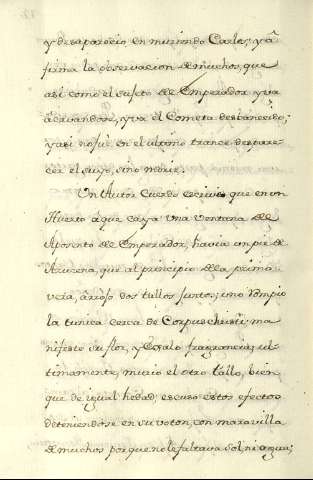 y desaparecio en muriendo Carlos; y â
firma la observacion de muchos, que
asi como el sufeto del Emperador yva
acavandose, yva el Cometa desbaneciendo;
y asi no fue en el ultimo trance desapare-
cer el suyo, sino morir.
Un Autor Cuerdo escrivio que en un
Huerto a que caya una ventana del
Aposento del Emperador, havia un pie de
Azuzena, que al principio de la prima-
vera, arrojò dos tallos juntos; uno rompio
la tunica cerca de Corpus christi, ma
nifesto su flor, y Exalo fragrancia; ul-
timamente, murio el otro tallo, bien
que de igual hedad; escuso estos efectos
deteniendose en su voton, con maravilla
de muchos porque no le faltava Sol, ni agua;